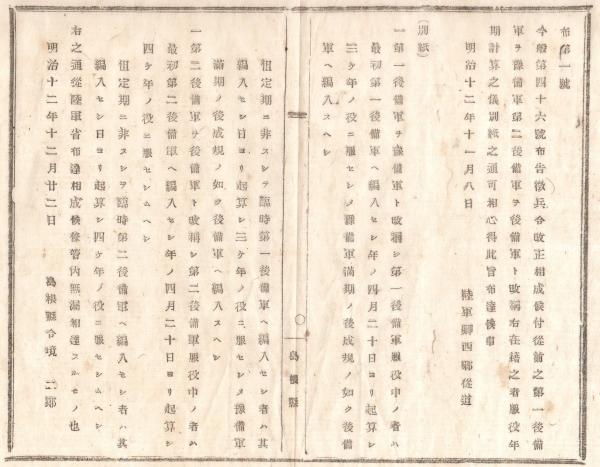 布第一號
今般第四十六號布告徵兵令改正相成候付從前之第一後備
軍ヲ豫備軍第二後備軍ヲ後備軍ト改稱右在籍之者服役年
期計算之儀別紙之通可相心得此旨布達候事
明治十二年十一月八日
陸軍卿西鄕從道
(別紙)
一第一後備軍ヲ豫備軍ト改稱シ第一後備軍服役中ノ者ハ
最初第一後備軍ヘ編入セシ年ノ四月二十日ヨリ起算シ
三ケ年ノ役ニ服セシメ豫備軍滿期ノ後成規ノ如ク後備
軍ヘ編入スヘシ
島根縣
但定期ニ非スシテ臨時第一後備軍ヘ編入セシ者ハ其
編入セシ日ヨリ起算シ三ケ年ノ役ニ服セシメ豫備軍
滿期ノ後成規ノ如ク後備軍ヘ編入スヘシ
一第二後備軍ヲ後備軍ト改稱シ第二後備軍服役中ノ者ハ
最初第二後備軍ヘ編入セシ年ノ四月二十日ヨリ起算シ
四ケ年ノ役ニ服セシムヘシ
但定期ニ非スシテ臨時第二後備軍ヘ編入セシ者ハ其
編入セシ日ヨリ起算シ四ケ年ノ役ニ服セシムヘシ
右之通從陸軍省布達相成候條管內無漏相達スルモノ也
明治十二年十二月廿二日
島根縣令境 二郎